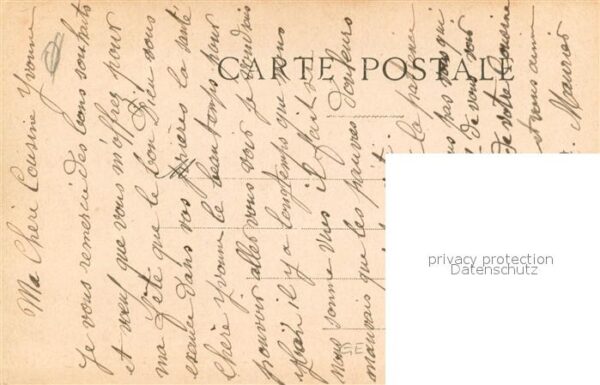 CARTE POSTALE
Ma Cheri Cousine Yvonne
je vous remerci des bons souhaits
et vœuf que vous m'offrez pour
ma fête que le bon Dieu vous
exauce dans vos prières la santé
Chère Yvonne le beau temps pour
pouvoir allez vous voir je voudrais
il y a longtemps que nous
nous somme vues il fait si
mauvais qui les pauvres douleurs
la
pas qui
de vous voir
de votre cousine
et vous aim
Maurice
privacy protection
Datenschutz